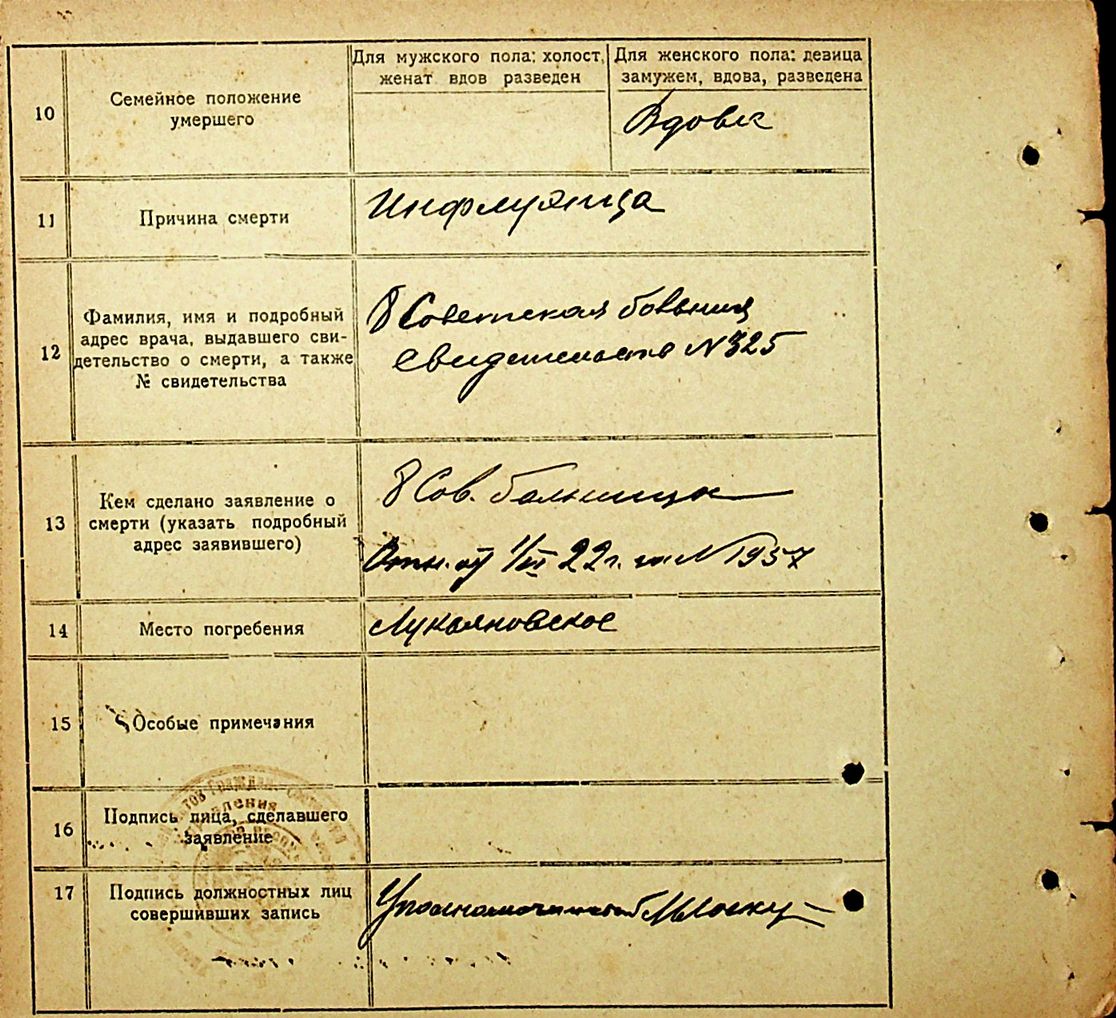 Для мужского пола: холост,
женат вдов разведен
Для женского пола: девица
замужем, вдова, разведена
10
Семейное положение
умершего
Вдова
11
Причина смерти
Инфлуэнца
12
Фамилия, имя и подробный
адрес врача, выдавшего сви-
детельство о смерти, а также
№ свидетельства
Советская больница
свидетельство № 325
13
Кем сделано заявление о
смерти (указать подробный
адрес заявившего)
Сов. больница
Отн. от 22 г. за № 1957
14
Место погребения
Лукьяновское
15
Особые примечания
16
Подпись лица, сделавшего
заявление
17
Подпись должностных лиц
совершивших запись